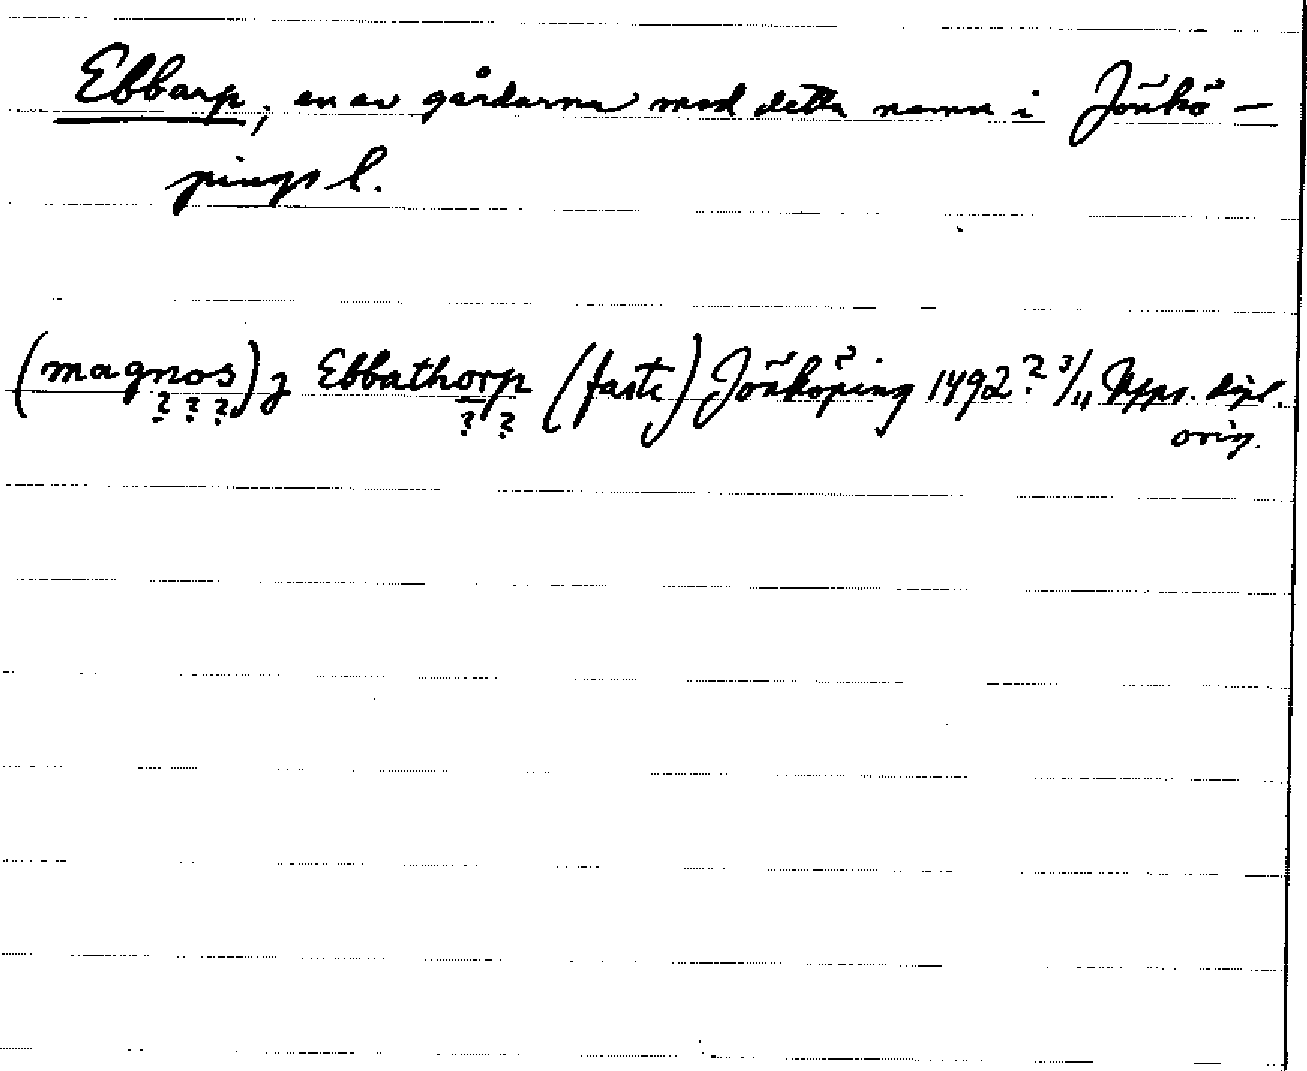 Ebbarp, en av gårdarna med detta namn i Jönkö-
pings l.
(magnos) j Ebbathorp (faste) Jönköping 1492? 3/11 Upps. dipl.
? ? ? ? ?
orig.